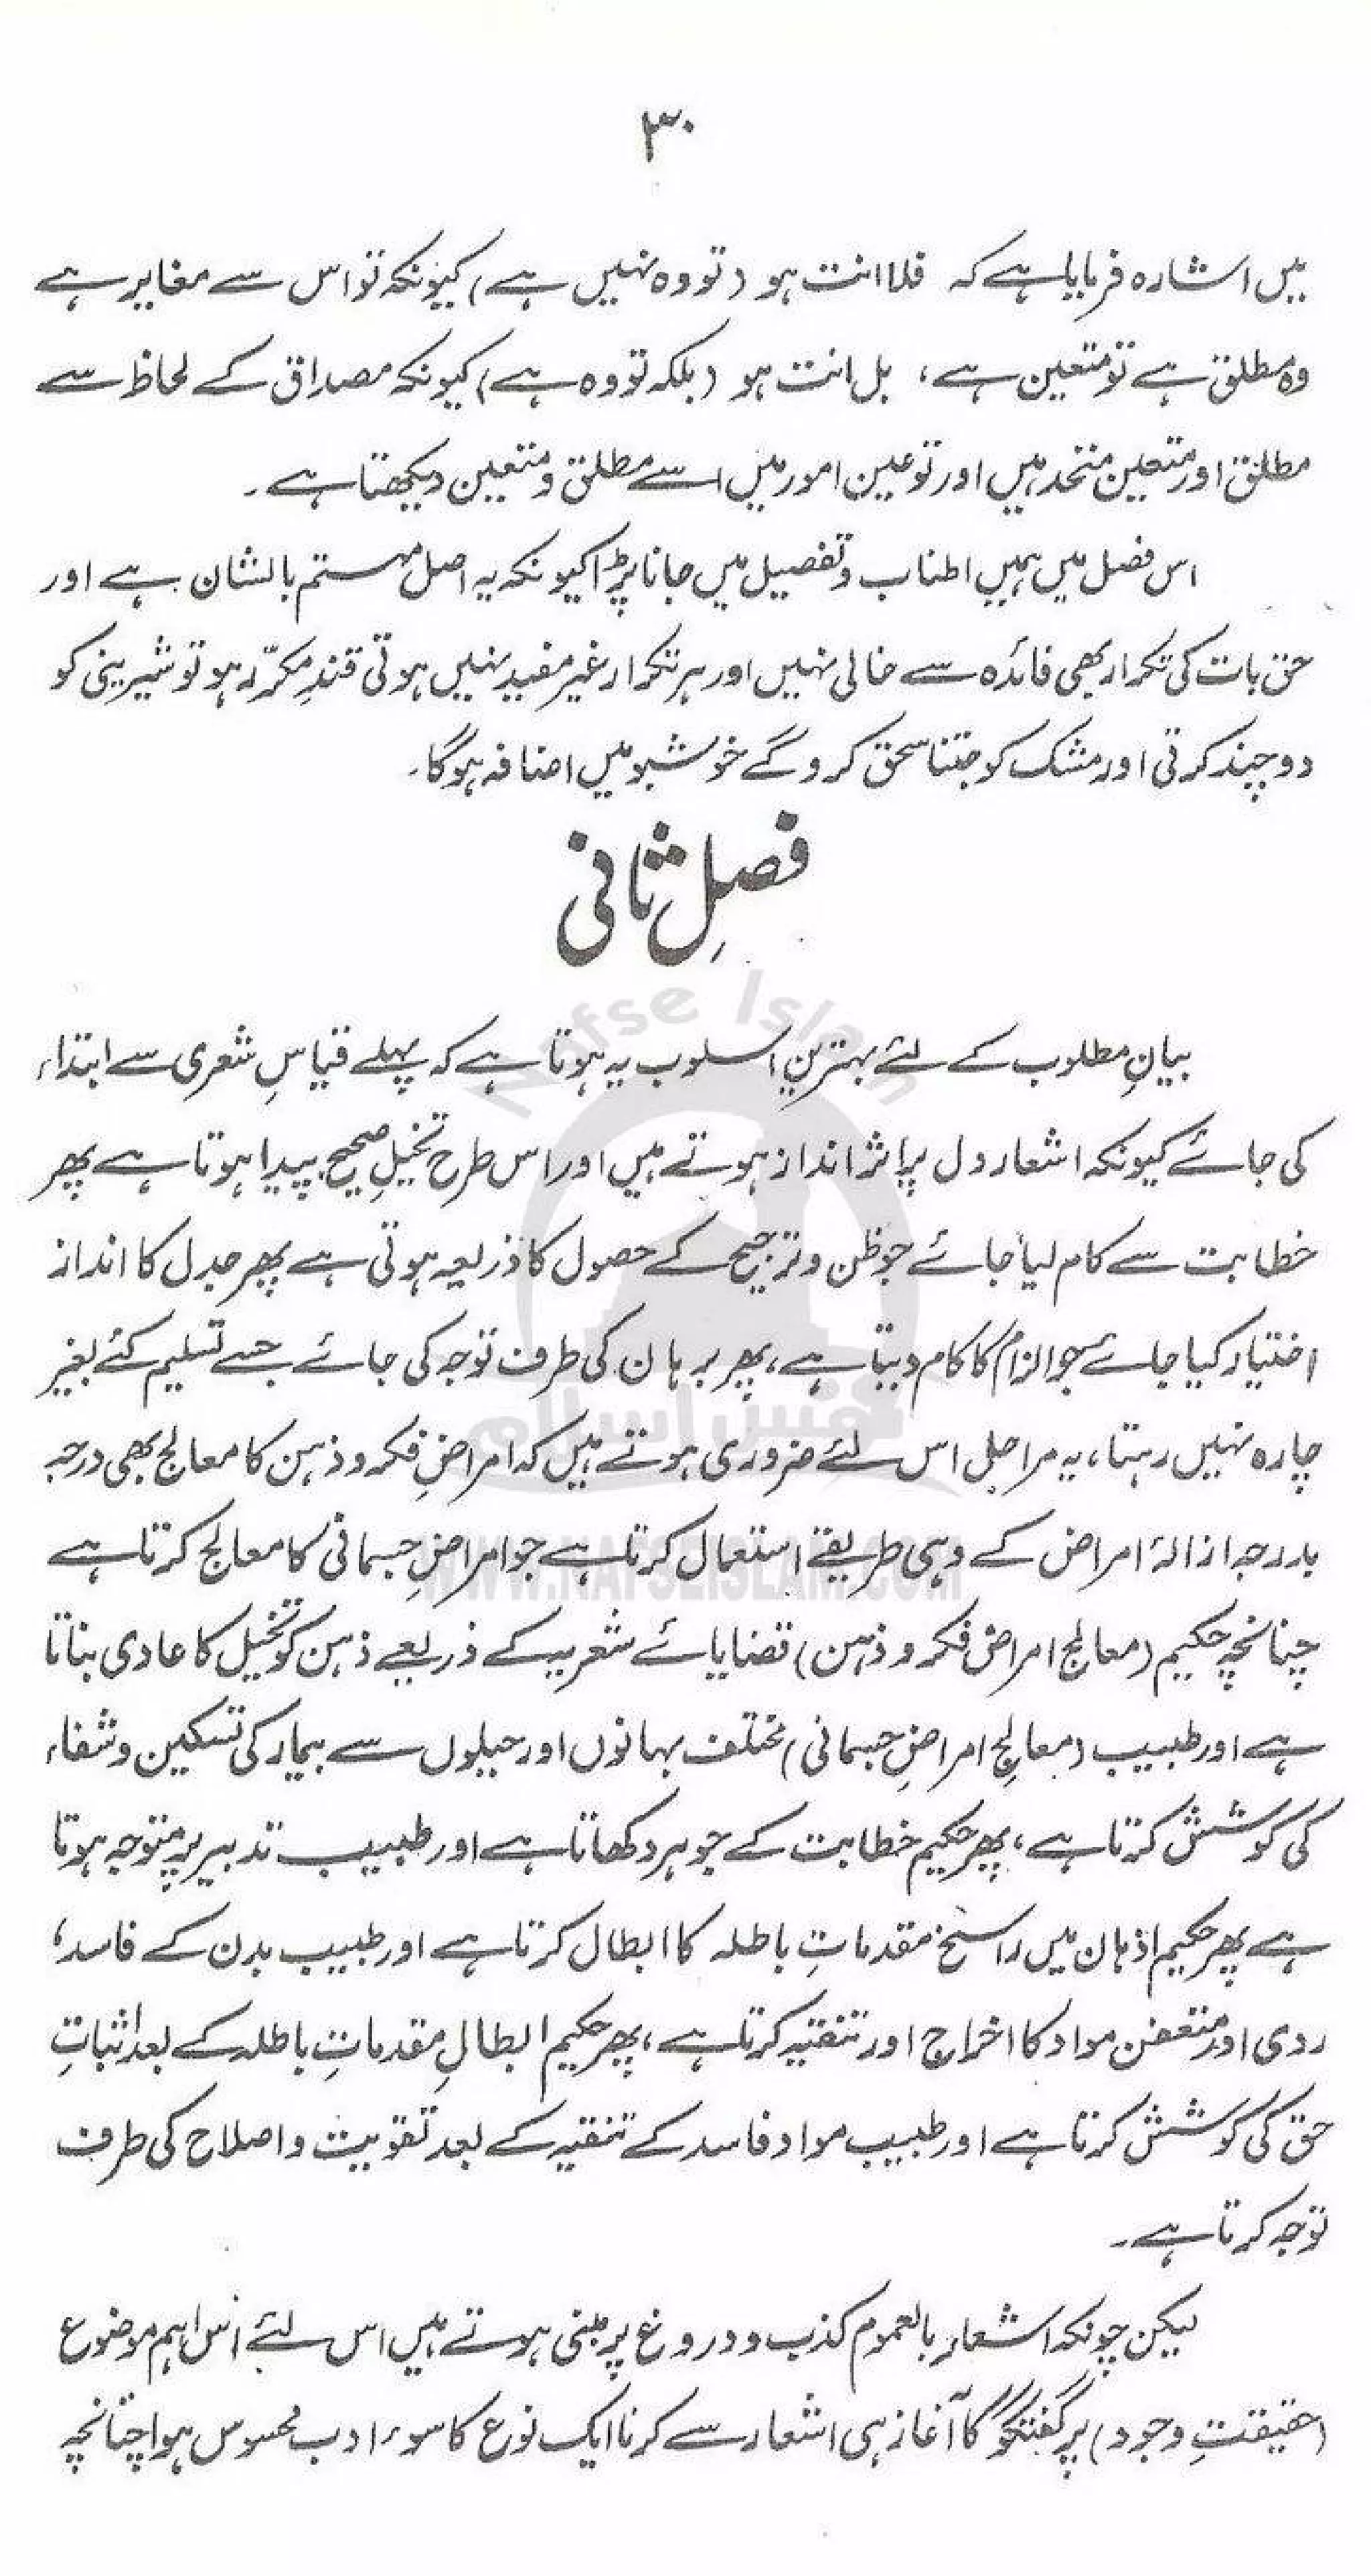 ۳۰
میں اشارہ فرمایا ہے کہ فلا انت ہو (تو وہ نہیں ہے) کیونکہ تو اس سے مغایر ہے
وہ مطلق ہے تو متعین ہے، بل انت ہو (بلکہ تو وہ ہے) کیونکہ مصداق کے لحاظ سے
مطلق اور متعین متحد ہیں اور تو عین امور میں اسے مطلق و متعین دیکھتا ہے۔
اس فصل میں ہمیں اطناب و تفصیل میں جانا پڑا کیونکہ یہ اصل مہتم بالشان ہے اور
حق بات کی تکرار بھی فائدہ سے خالی نہیں اور ہر تکرار غیر مفید نہیں ہوتی قندِ مکرّر ہو تو شیرینی کو
دو چند کرتی اور مشک کو جتنا سحق کرو گے خوشبو میں اضافہ ہوگا۔
فصلِ ثانی
بیانِ مطلوب کے لئے بہترین اسلوب یہ ہوتا ہے کہ پہلے قیاسِ شعری سے ابتداء
کی جائے کیونکہ اشعار دل پر اثر انداز ہوتے ہیں اور اس طرح تخیلِ صحیح پیدا ہوتا ہے پھر
خطابت سے کام لیا جائے جو ظن و ترجیح کے حصول کا ذریعہ ہوتی ہے پھر جدل کا انداز
اختیار کیا جائے جو الزام کا کام دیتا ہے، پھر برہان کی طرف توجہ کی جائے جسے تسلیم کئے بغیر
چارہ نہیں رہتا، یہ مراحل اس لئے ضروری ہوتے ہیں کہ امراضِ فکر و ذہن کا معالج بھی درجہ
بدرجہ ازالۂ امراض کے وہی طریقے استعمال کرتا ہے جو امراضِ جسمانی کا معالج کرتا ہے
چنانچہ حکیم (معالج امراض فکر و ذہن) قضایائے شعریہ کے ذریعے ذہن کو تخیل کا عادی بناتا
ہے اور طبیب (معالجِ امراضِ جسمانی) مختلف بہانوں اور حیلوں سے بیمار کی تسکین و شفاء
کی کوشش کرتا ہے، پھر حکیم خطابت کے جوہر دکھاتا ہے اور طبیب تدبیر پر متوجہ ہوتا
ہے پھر حکیم اذہان میں راسخ مقدماتِ باطلہ کا ابطال کرتا ہے اور طبیب بدن کے فاسد،
ردی اور متعفن مواد کا اخراج اور تنقیہ کرتا ہے، پھر حکیم ابطالِ مقدماتِ باطلہ کے بعد اثباتِ
حق کی کوشش کرتا ہے اور طبیب مواد فاسد کے تنقیہ کے بعد تقویت و اصلاح کی طرف
توجہ کرتا ہے۔
لیکن چونکہ اشعار بالعموم کذب و دروغ پر مبنی ہوتے ہیں اس لئے اس اہم موضوع
(حقیقتِ وجود) پر گفتگو کا آغاز ہی اشعار سے کرنا ایک نوع کا سوءِ ادب محسوس ہوا چنانچہ
Nafse Islam
نفس اسلام
WWW.NAFSEISLAM.COM